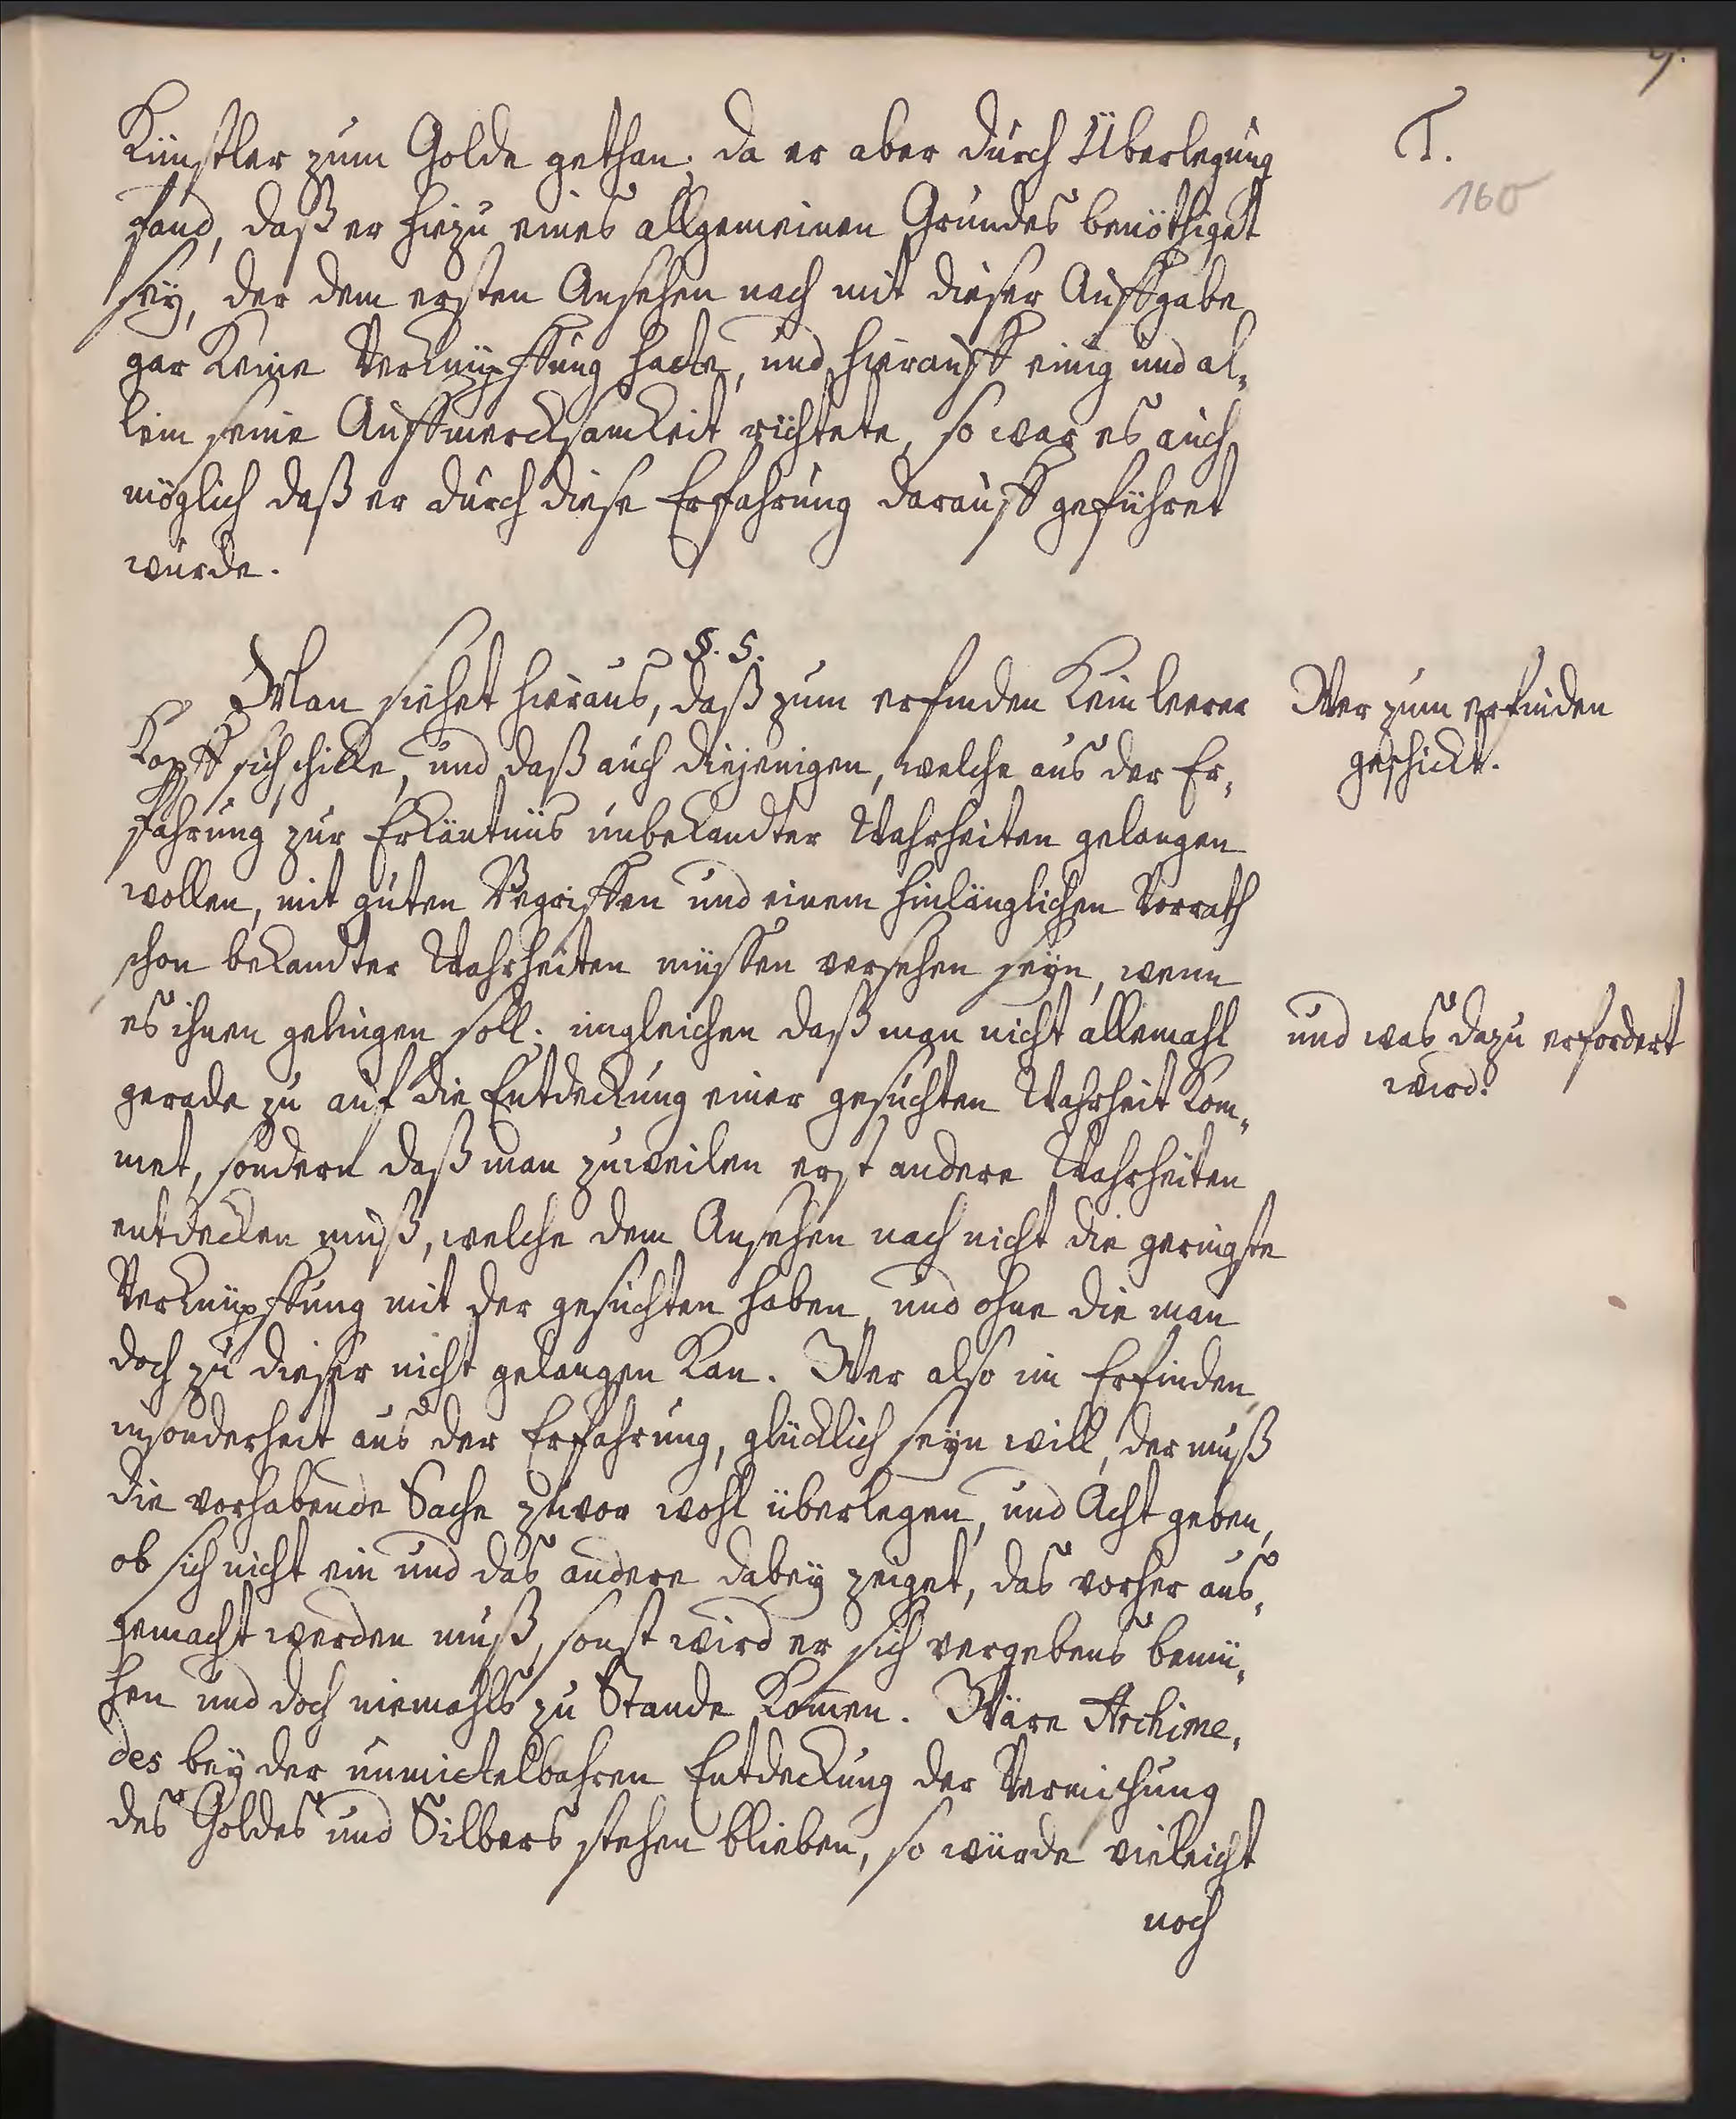 T.
160
Künstler zum Golde gethan; da er aber durch Überlegung
fand, daß er hiezu eines allgemeinen Grundes benöthiget
sey, der dem ersten Ansehen nach mit dieser Auffgabe
gar keine Verknüpffung hatte, und hierauff einig und al„
lein seine Auffmercksamkeit richtete, so war es auch
möglich daß er durch diese Erfahrung darauff geführet
wurde.
§. 5.
Man siehet hieraus, daß zum erfinden kein leerer
Kopff sich schikke, und daß auch diejenigen, welche aus der Er„
fahrung zur Erkäntniis unbekandter Wahrheiten gelangen
wollen, mit guten Begriffen und einem hinlänglichen Vorrath
schon bekandter Wahrheiten müssen versehen seyn, wenn
es ihnen gelingen soll; imgleichen daß man nicht allemahl
gerade zu auf die Entdeckung einer gesuchten Wahrheit kom„
met, sondern daß man zuweilen erst andere Wahrheiten
entdecken muß, welche dem Ansehen nach nicht die geringste
Verknüpffung mit der gesuchten haben, und ohne die man
doch zu dieser nicht gelangen kan. Wer also im Erfinden,
insonderheit aus der Erfahrung, glücklich seyn will, der muß
die vorhabende Sache zuvor wohl überlegen, und Acht geben,
ob sich nicht ein und das andere dabey zeiget, das vorher aus„
gemacht werden muß, sonst wird er sich vergebens bemü„
hen und doch niemahls zu Stande kom̅en. Wäre Archime„
des bey der unmittelbahren Entdeckung der Vermischung
des Goldes und Silbers stehen blieben, so würde vieleicht
noch
Wer zum erfinden
geschickt.
und was dazu erfordert
wird.